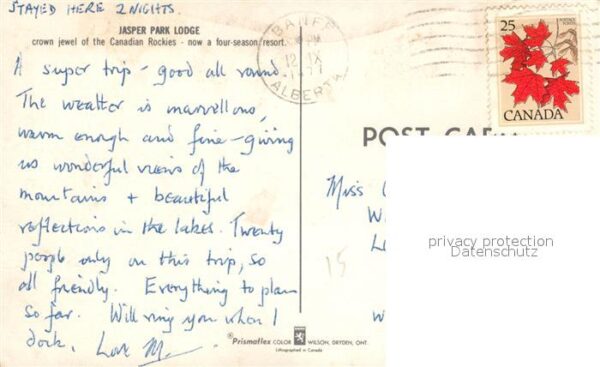 STAYED HERE 2 NIGHTS.
JASPER PARK LODGE
crown jewel of the Canadian Rockies - now a four-season resort.
A super trip - good all round
The weather is marvellous,
warm enough and fine - giving
us wonderful views of the
mountains + beautiful
reflections in the lakes. Twenty
people only on this trip, so
all friendly. Everything to plan
so far. Will ring you when I
dock. Love M.
BANFF
PM
12 IX
ALBERTA
25
POSTAGE
POSTES
CANADA
POST CARD
Miss
W
L
W
15
privacy protection
Datenschutz
®Prismaflex COLOR WILSON, DRYDEN, ONT.
Lithographed in Canada